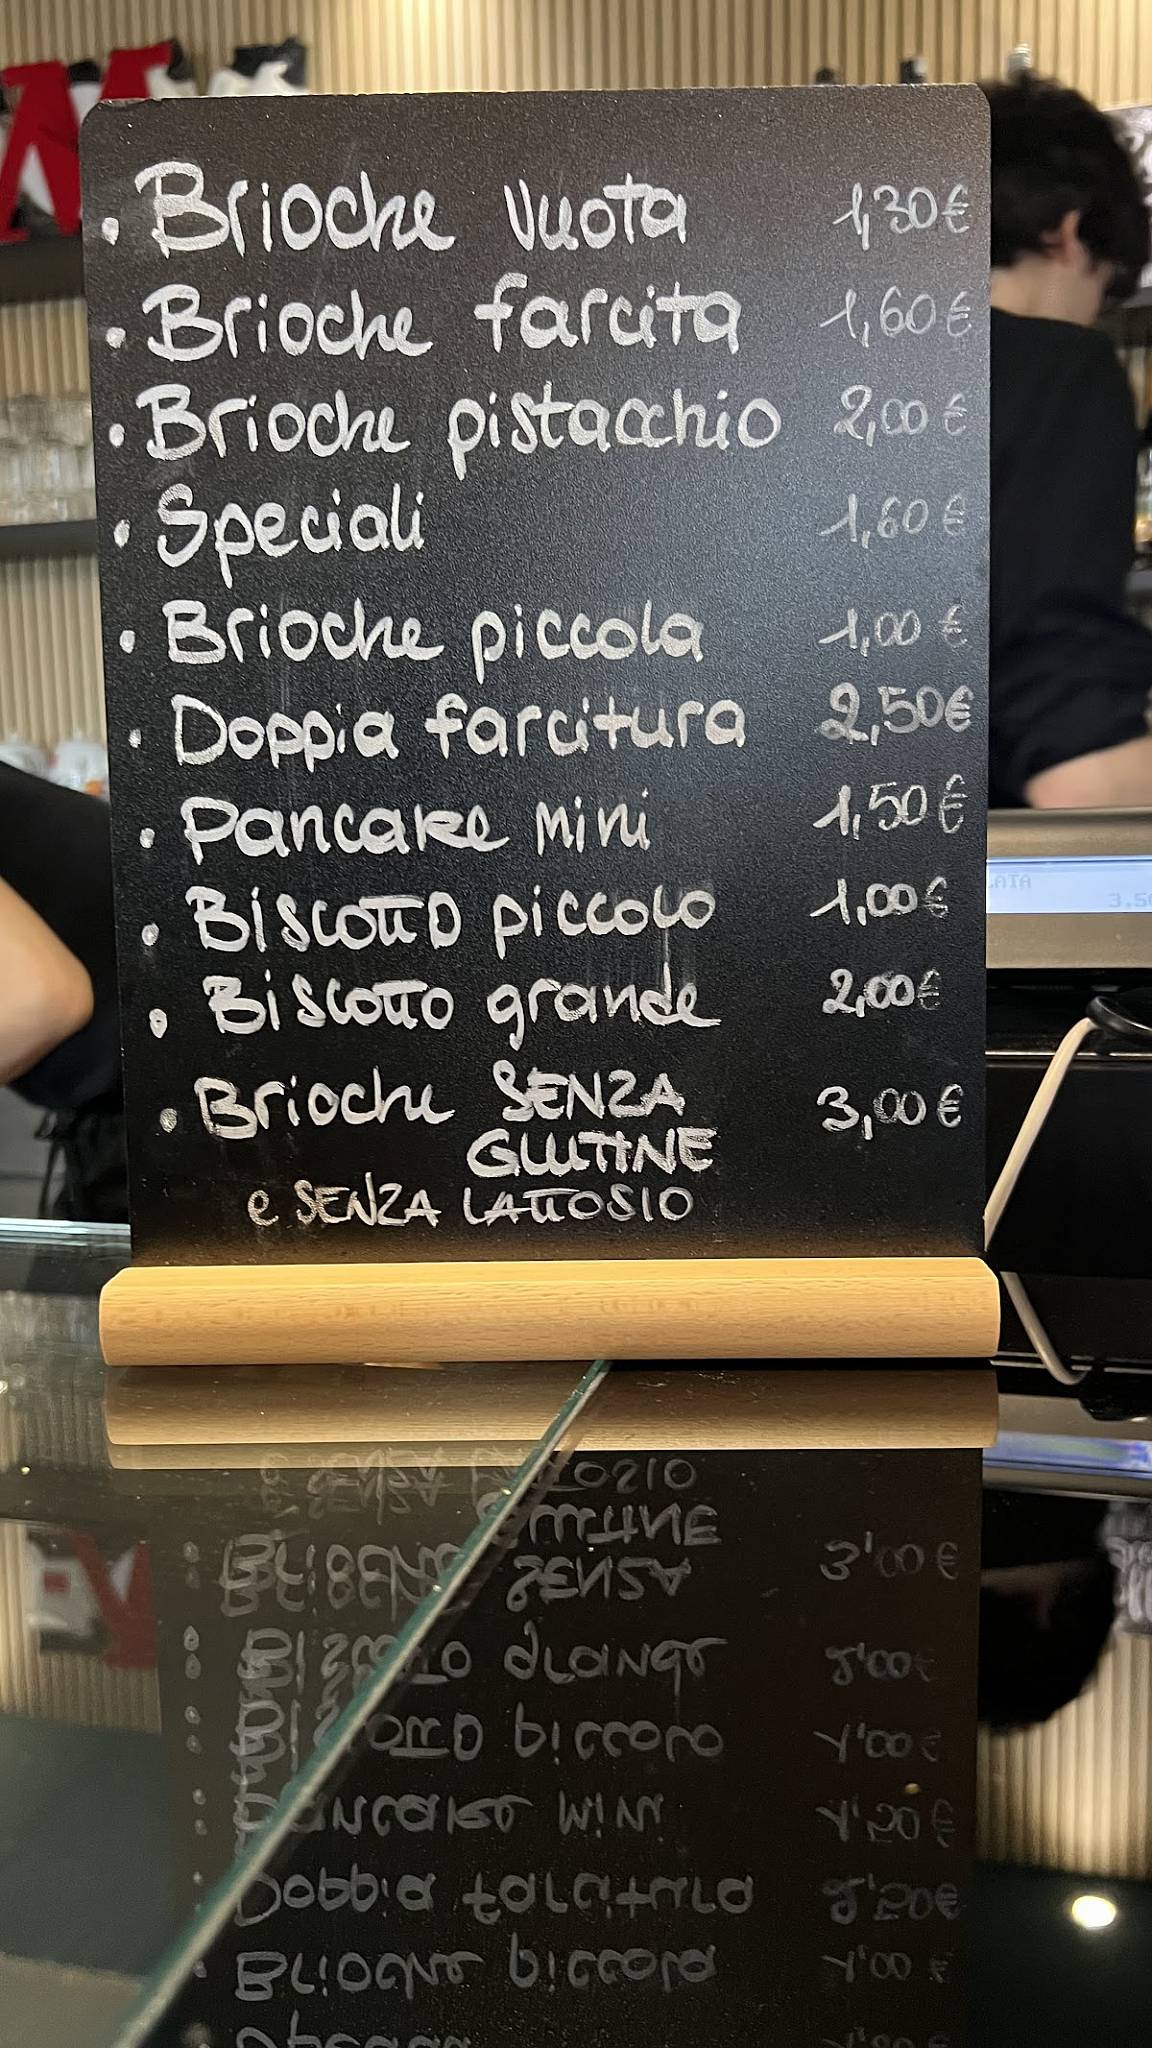 • Brioche vuota 1,30€
• Brioche farcita 1,60€
• Brioche pistacchio 2,00€
• Speciali 1,60€
• Brioche piccola 1,00€
• Doppia farcitura 2,50€
• Pancake mini 1,50€
• Biscotto piccolo 1,00€
• Biscotto grande 2,00€
• Brioche SENZA 3,00€
GLUTINE
e SENZA LATTOSIO